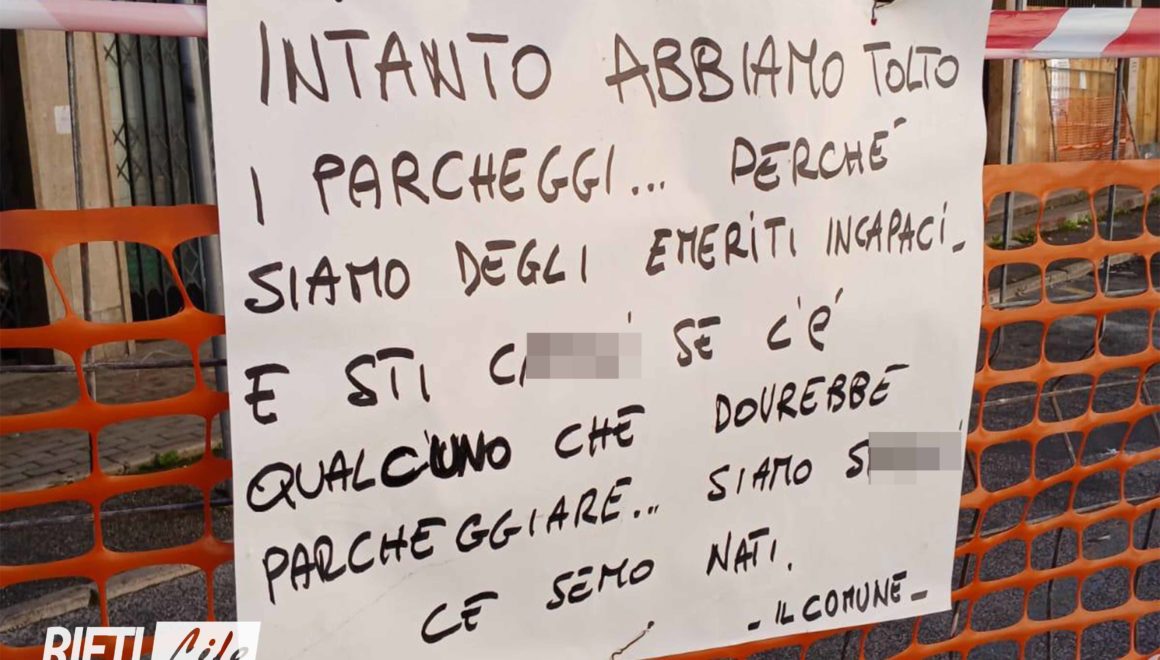 INTANTO ABBIAMO TOLTO
I PARCHEGGI... PERCHE'
SIAMO DEGLI EMERITI INCAPACI_
E STI SE C'È
QUALCUNO CHE DOVREBBE
PARCHEGGIARE... SIAMO
CE SEMO NATI.
- IL COMUNE -
RIETI Life